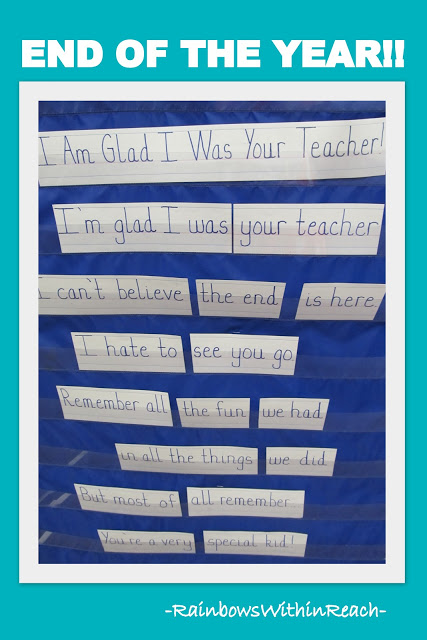 END OF THE YEAR!!
I Am Glad I Was Your Teacher!
I'm glad I was your teacher
I can't believe the end is here
I hate to see you go
Remember all the fun we had
in all the things we did
But most of all remember
You're a very special kid!
-RainbowsWithinReach-